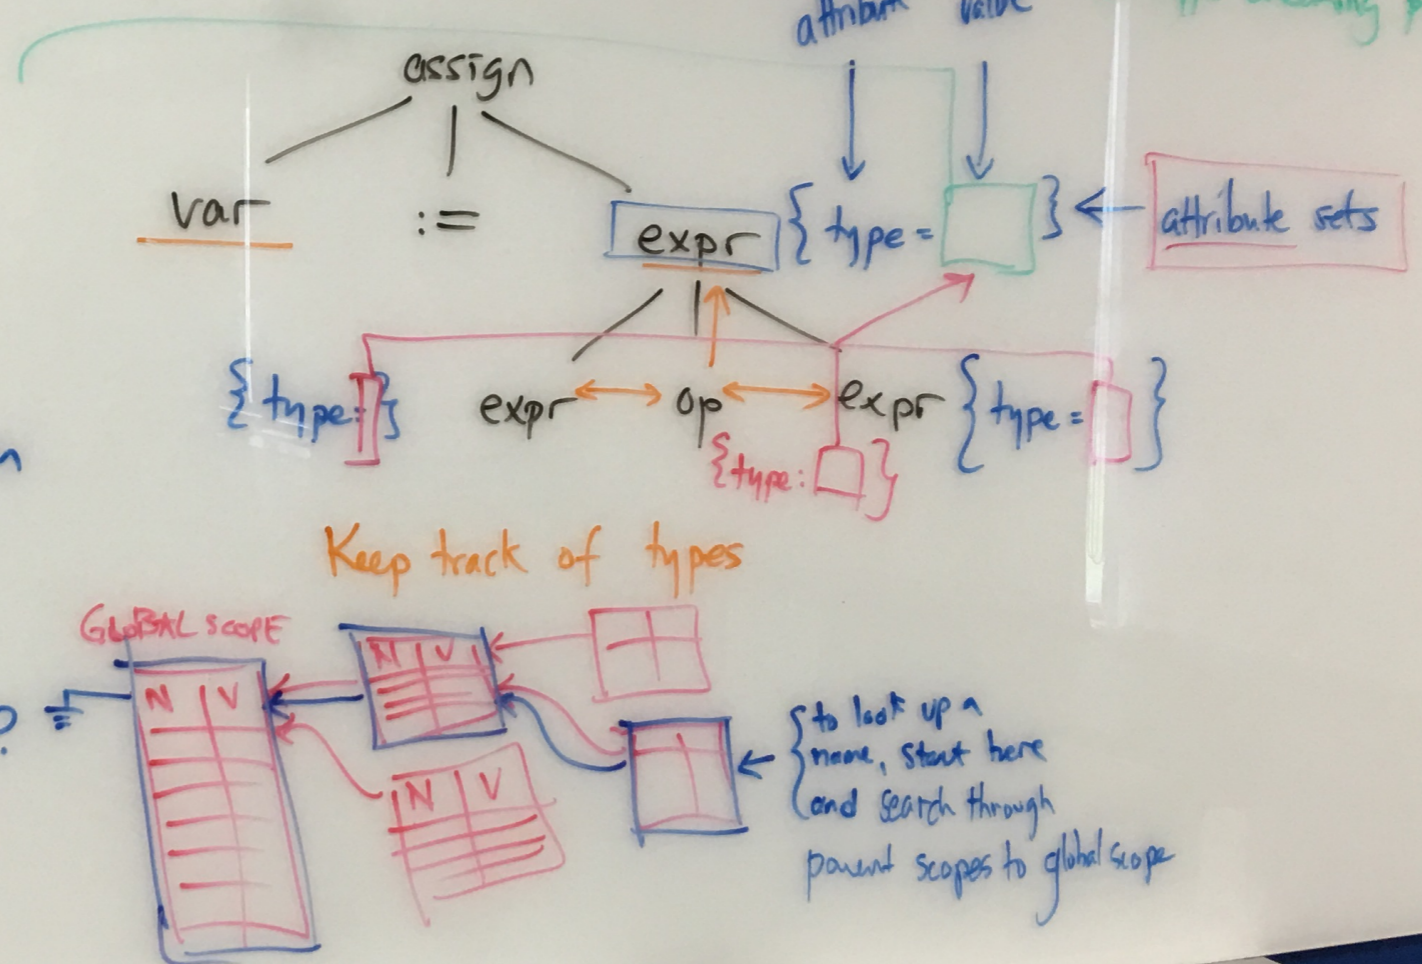 attribute value
assign
var := expr { type = } ← attribute sets
{ type: } expr op expr { type = }
{ type: }
Keep track of types
GLOBAL SCOPE
N V
N V
N V
{ to look up a
name, start here
and search through
parent scopes to global scope
?